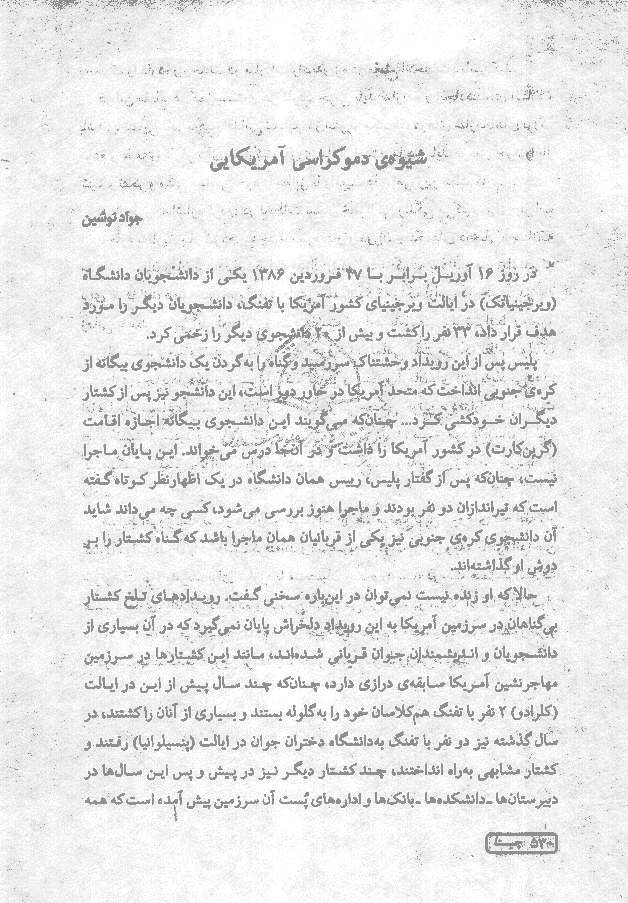 شیوه‌ی دموکراسی آمریکایی
جواد نوشین
در روز ۱۶ آوریل برابر با ۲۷ فروردین ۱۳۸۶ یکی از دانشجویان دانشگاه
(ویرجینیاتک) در ایالت ویرجینیای کشور آمریکا با تفنگ، دانشجویان دیگر را مورد
هدف قرار داد، ۳۳ نفر را کشت و بیش از ۲۰ دانشجوی دیگر را زخمی کرد.
پلیس پس از این رویداد وحشتناک سررسید و گناه را به‌گردن یک دانشجوی بیگانه از
کره‌ی جنوبی انداخت که متحد آمریکا در خاور دور است، این دانشجو نیز پس از کشتار
دیگران خودکشی کرد... چنان‌که می‌گویند این دانشجوی بیگانه اجازه اقامت
(گرین‌کارت) در کشور آمریکا را داشت و در آن‌جا درس می‌خواند. این پایان ماجرا
نیست، چنان‌که پس از گفتار پلیس، رییس همان دانشگاه در یک اظهارنظر کوتاه گفته
است که تیراندازان دو نفر بودند و ماجرا هنوز بررسی می‌شود، کسی چه می‌داند شاید
آن دانشجوی کره‌ی جنوبی نیز یکی از قربانیان همان ماجرا باشد که گناه کشتار را بر
دوش او گذاشته‌اند.
حالا که او زنده نیست نمی‌توان در این‌باره سخنی گفت. رویدادهای تلخ کشتار
بی‌گناهان در سرزمین آمریکا به این رویداد دلخراش پایان نمی‌گیرد که در آن بسیاری از
دانشجویان و اندیشمندان جوان قربانی شده‌اند، مانند این کشتارها در سرزمین
مهاجرنشین آمریکا سابقه‌ی درازی دارد، چنان‌که چند سال پیش از این در ایالت
(کلرادو) ۲ نفر با تفنگ هم‌کلاسان خود را به‌گلوله بستند و بسیاری از آنان را کشتند، در
سال گذشته نیز دو نفر با تفنگ به‌دانشگاه دختران جوان در ایالت (پنسیلوانیا) رفتند و
کشتار مشابهی به‌راه انداختند، چند کشتار دیگر نیز در پیش و پس این سال‌ها در
دبیرستان‌ها ـ دانشکده‌ها ـ بانک‌ها و اداره‌های پُست آن سرزمین پیش آمده است که همه
چیستا